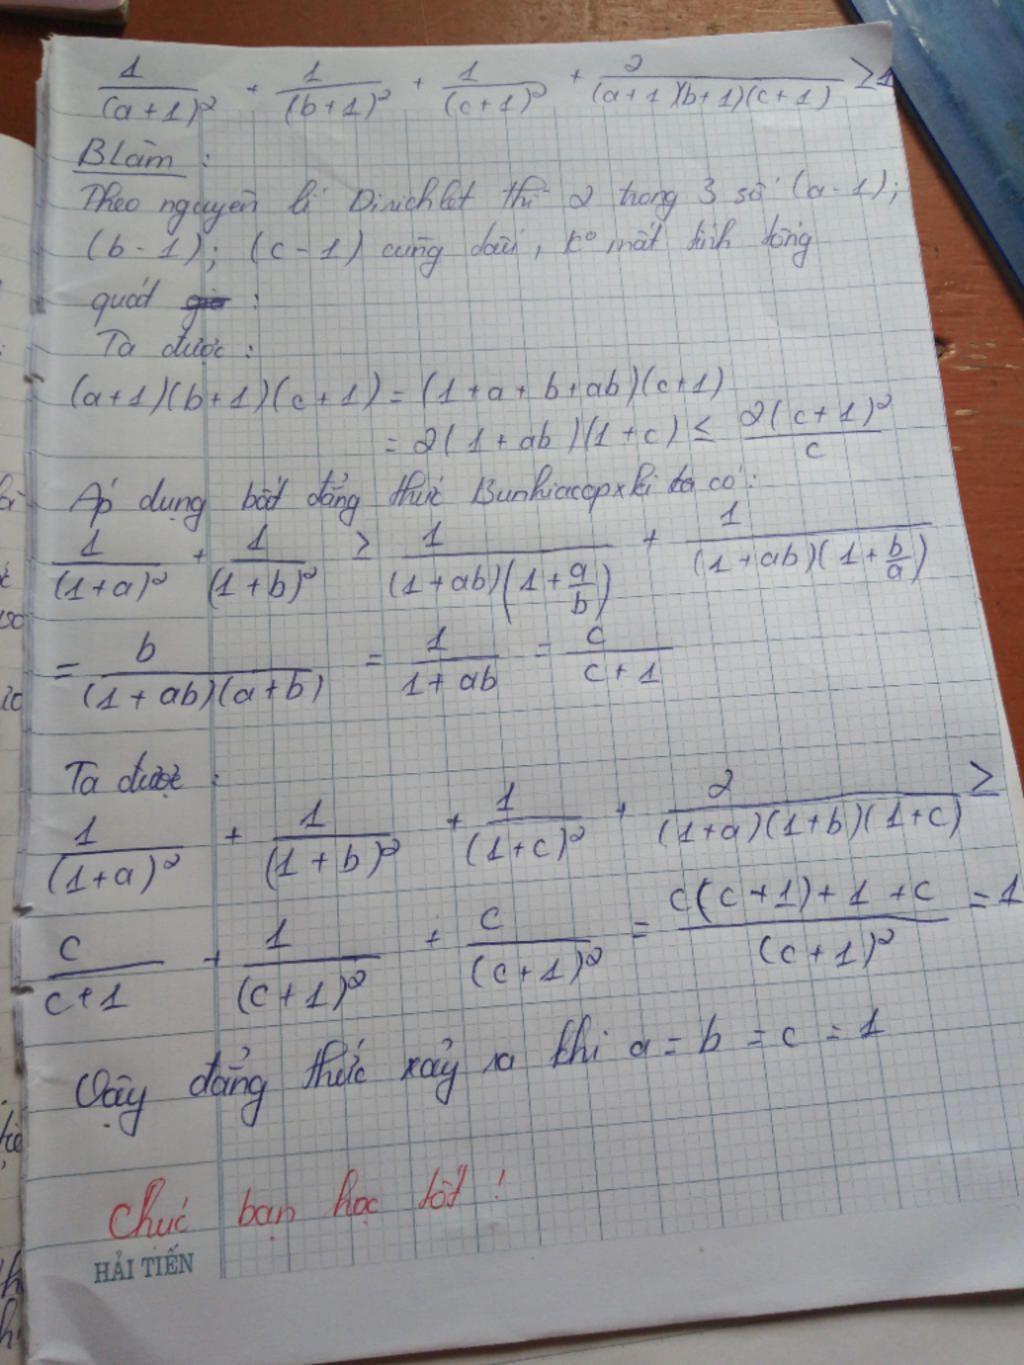 1/(a+1)² + 1/(b+1)² + 1/(c+1)² + 2/(a+1)(b+1)(c+1) ≥ 1
BLàm :
Theo nguyên lí Dirichlet thì 2 trong 3 số (a-1);
(b-1); (c-1) cùng dấu, k° mất tính tổng
quát :
Ta được :
(a+1)(b+1)(c+1) = (1+a+b+ab)(c+1)
= 2(1+ab)(1+c) ≤ 2(c+1)²/c
Áp dụng bất đẳng thức Bunhiacopxki ta có :
1/(1+a)² + 1/(1+b)² ≥ 1/(1+ab)(1+a/b) + 1/(1+ab)(1+b/a)
= b/(1+ab)(a+b) = 1/1+ab = c/c+1
Ta được :
1/(1+a)² + 1/(1+b)² + 1/(1+c)² + 2/(1+a)(1+b)(1+c) ≥
c/c+1 + 1/(c+1)² + c/(c+1)² = c(c+1)+1+c/(c+1)² = 1
Vậy đẳng thức xảy ra khi a = b = c = 1
Chúc bạn học tốt !
HẢI TIẾN